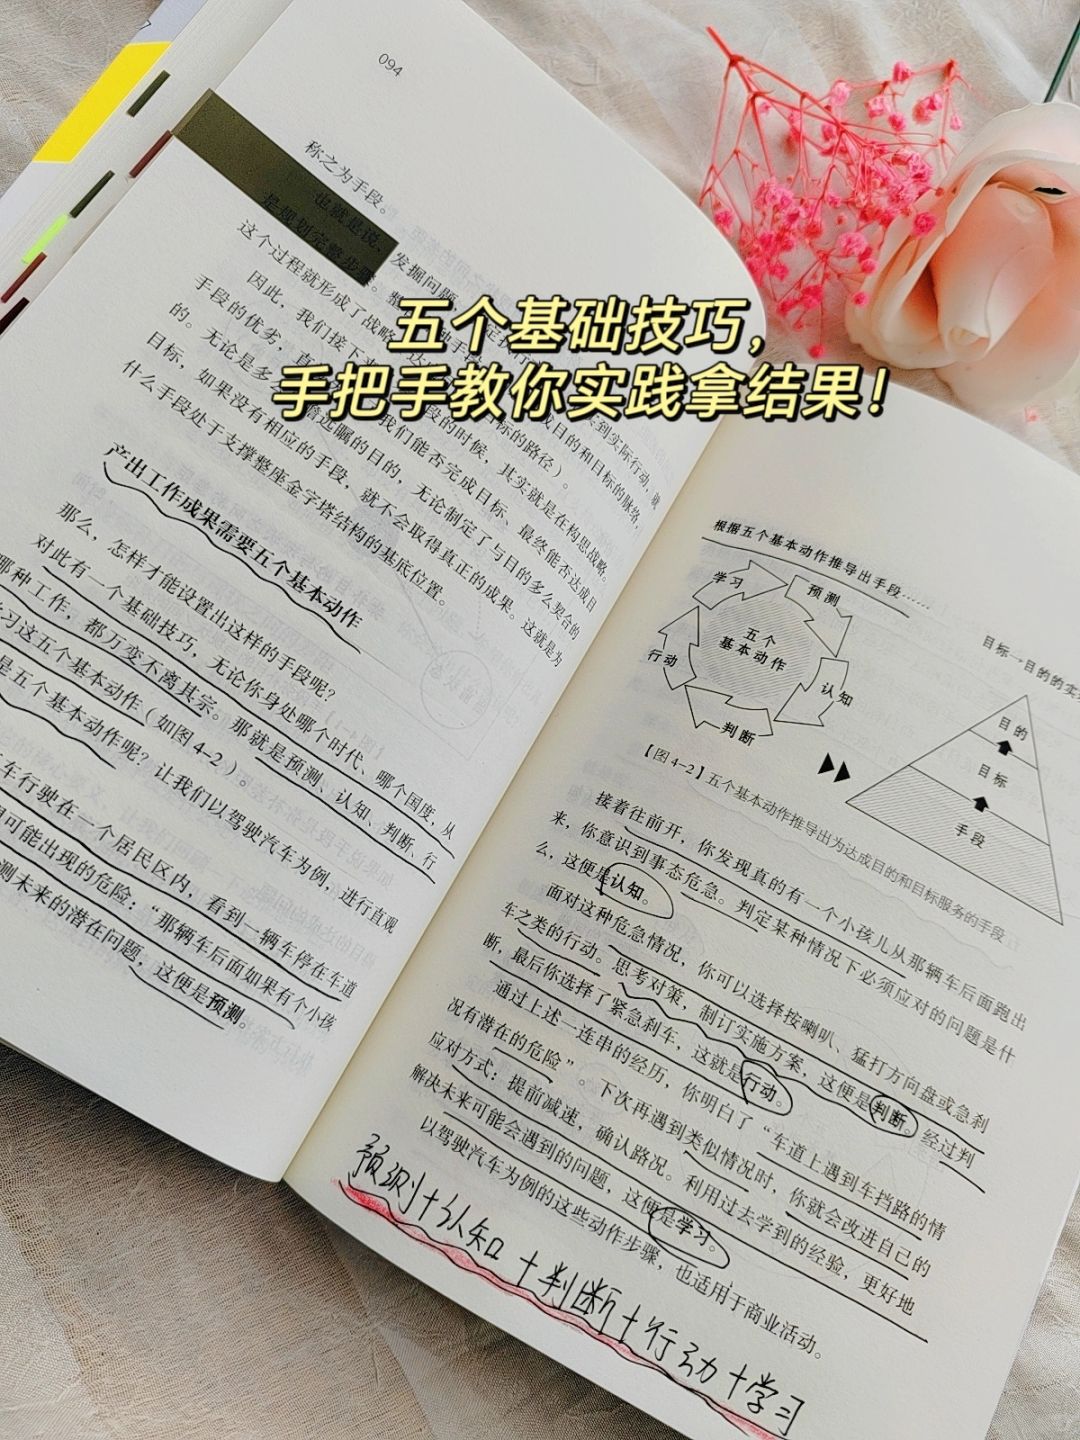 五个基础技巧，
手把手教你实践拿结果！
094
称之为手段。
也就是说，发掘问题
是规划完整步骤。整
这个过程就形成了战略
因此，我们接下来
手段的优劣，直
的。无论是多么高瞻远瞩的目的，无论制定了与目的多么契合的
目标，如果没有相应的手段，就不会取得真正的成果。这就是为
什么手段处于支撑整座金字塔结构的基底位置。
产出工作成果需要五个基本动作
那么，怎样才能设置出这样的手段呢？
对此有一个基础技巧，无论你身处哪个时代、哪个国度，从
那种工作，都万变不离其宗。那就是预测、认知、判断、行
习这五个基本动作（如图4-2）。
是五个基本动作呢？让我们以驾驶汽车为例，进行直观
车行驶在一个居民区内，看到一辆车停在车道
可能出现的危险：“那辆车后面如果有个小孩
测未来的潜在问题，这便是预测。
根据五个基本动作推导出手段……
学习
预测
五个
基本动作
行动
认知
判断
目标→目的的实
目的
目标
手段
【图4-2】五个基本动作推导出为达成目的和目标服务的手段
接着往前开，你发现真的有一个小孩儿从那辆车后面跑出
来，你意识到事态危急。判定某种情况下必须应对的问题是什
么，这便是认知。
面对这种危急情况，你可以选择按喇叭、猛打方向盘或急刹
车之类的行动。思考对策，制订实施方案，这便是判断。经过判
断，最后你选择了紧急刹车，这就是行动。
通过上述一连串的经历，你明白了“车道上遇到车挡路的情
况有潜在的危险”。下次再遇到类似情况时，你就会改进自己的
应对方式：提前减速，确认路况。利用过去学到的经验，更好地
解决未来可能会遇到的问题，这便是学习。
以驾驶汽车为例的这些动作步骤，也适用于商业活动。
预测+认知+判断+行动+学习